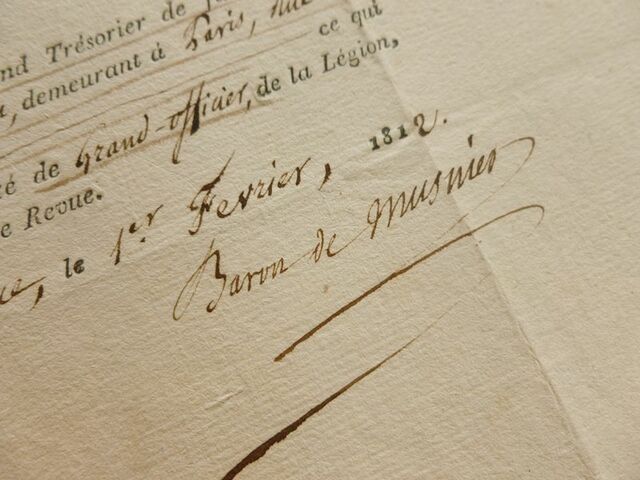 nd Trésorier de
, demeurant à Paris, rue
ce qui
é de Grand-officier, de la Légion,
e Revue.
ce, le 1.er Fevrier, 1812.
Baron de Musnier